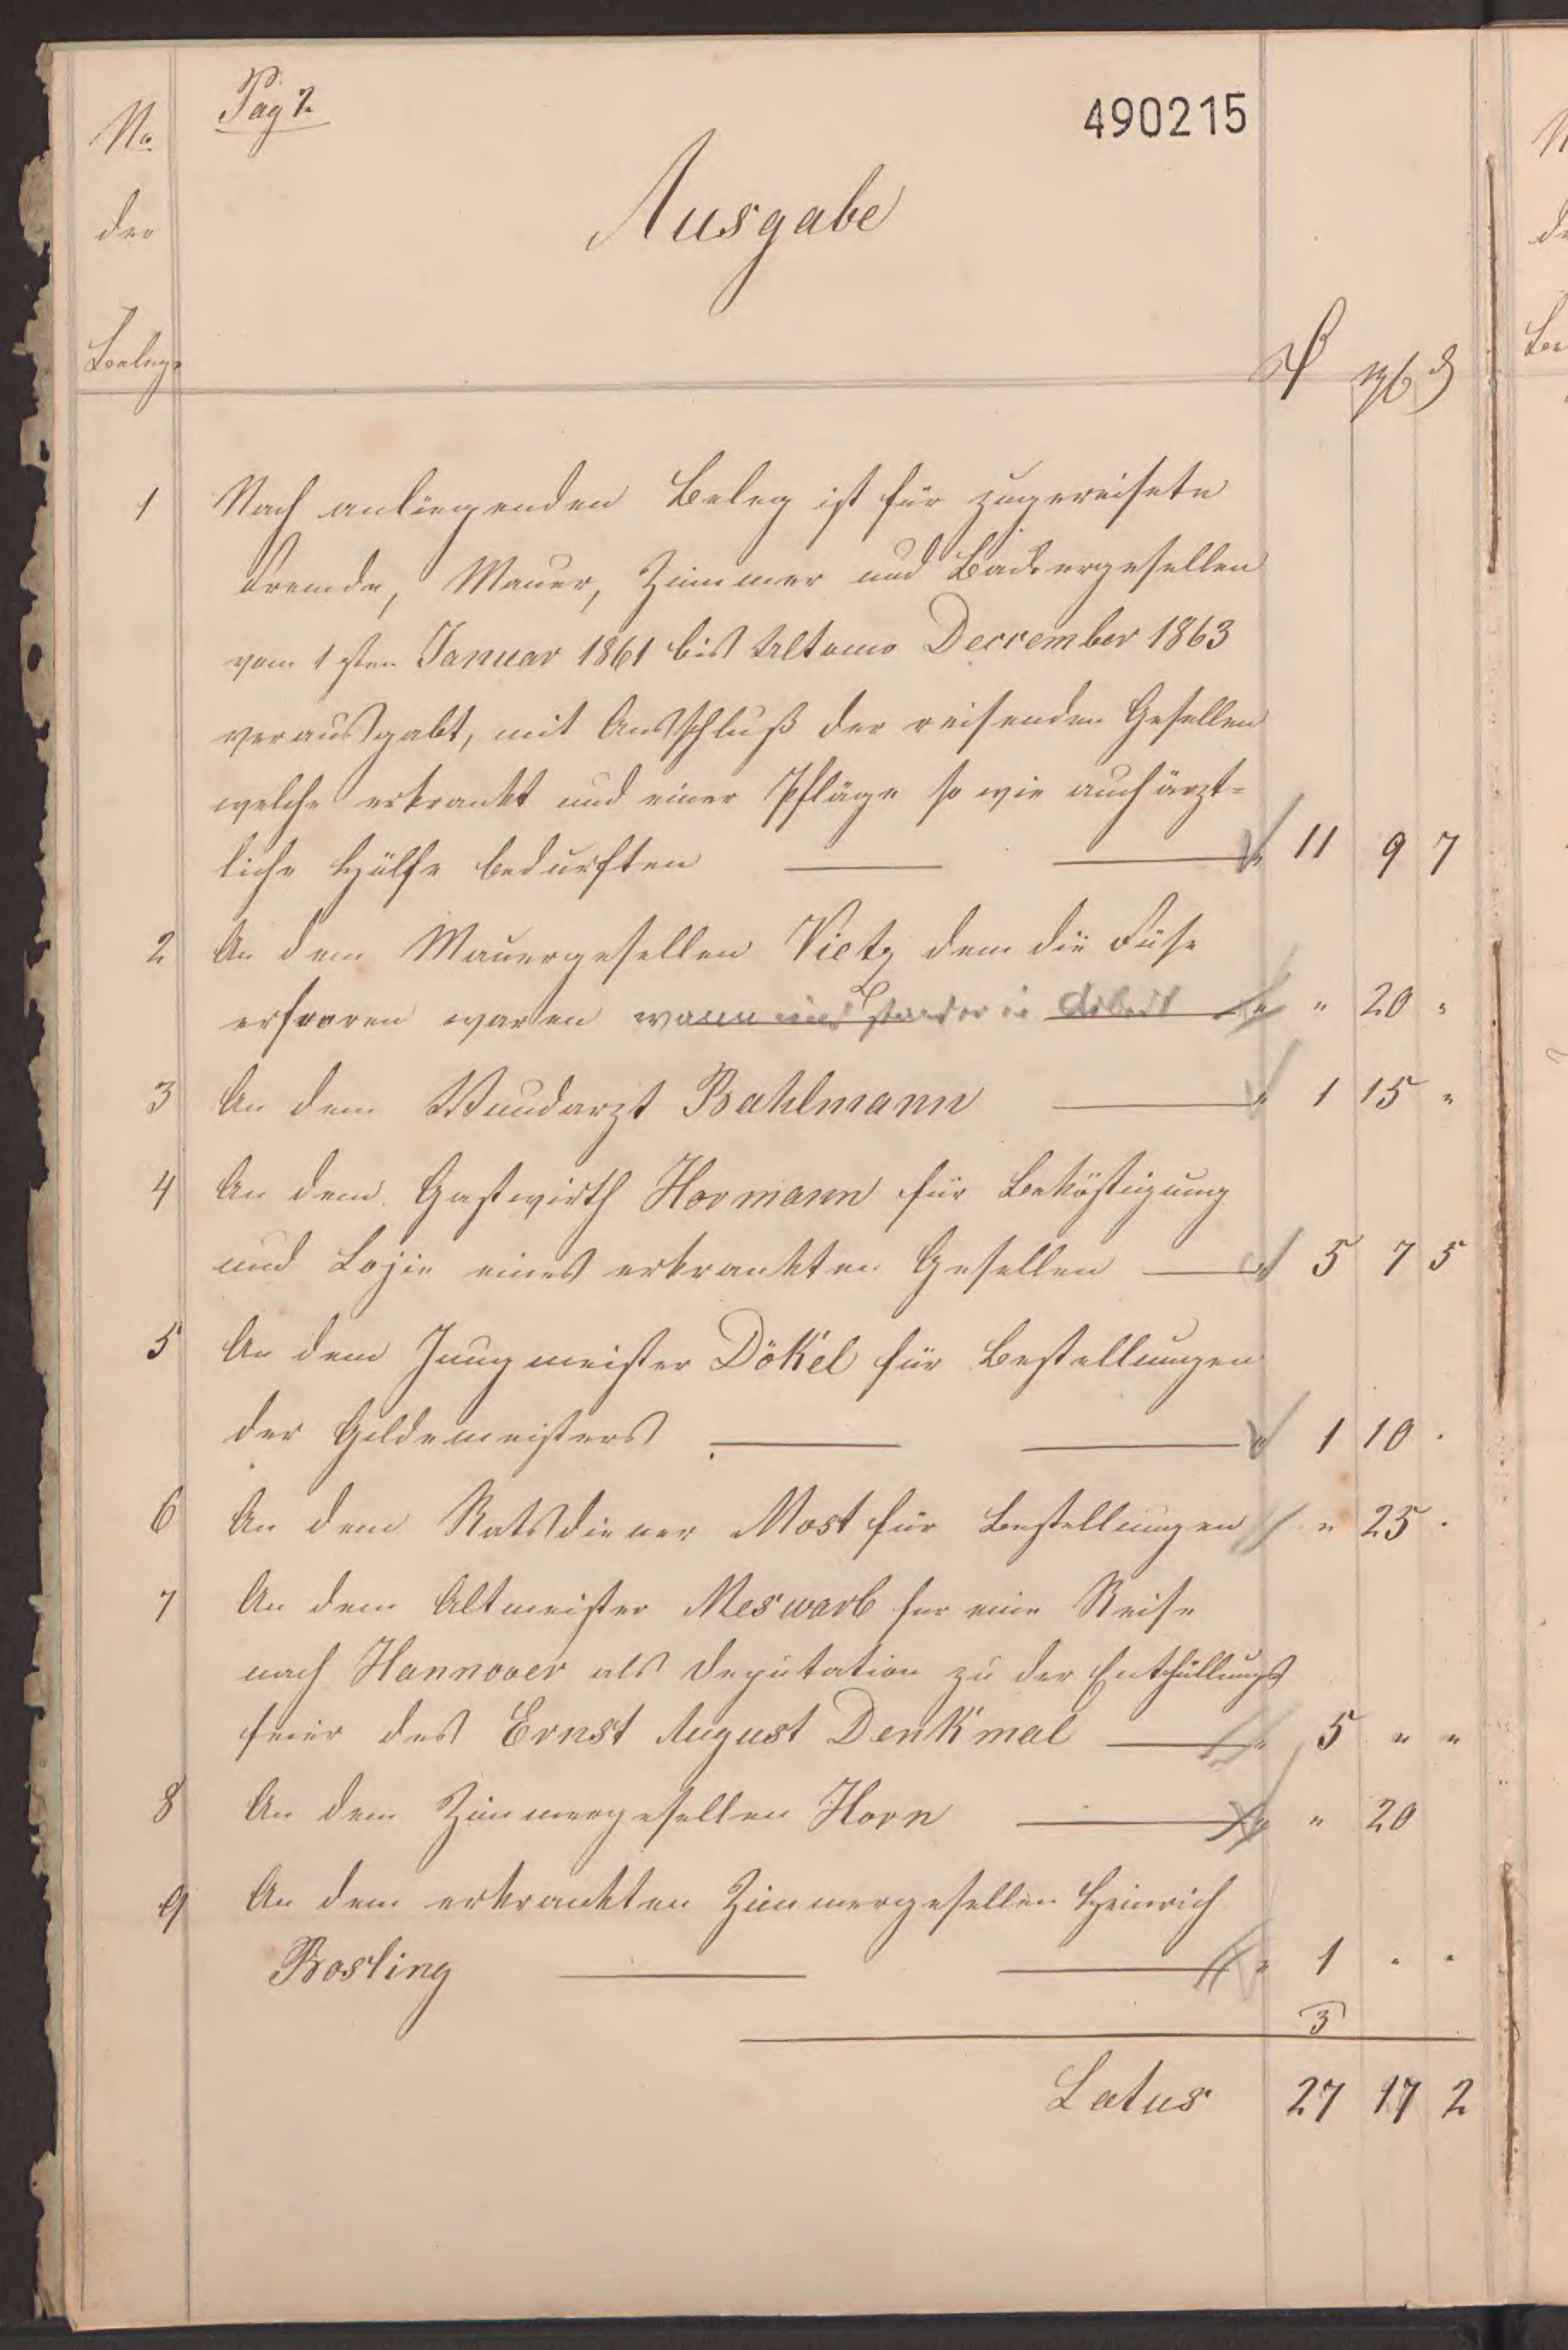 Pag 2
490215
No
der
Belege
Ausgabe
₰ ngr ₰
1 Nach anliegenden Beleg ist für zugereisete
fremde, Mauer, Zimmer und Backergesellen
vom 1sten Januar 1861 bis Ultomo Dercember 1863
verausgabt, mit Ausschluß der reisenden Gesellen
welche erkrankt und einer Pfläge so wie auch ärzt=
liche Hülfe bedurften " 11 9 7
2 An dem Mauergesellen Vietz dem die Füse
erfroren waren wann und stand er in Arbeit " " 20 "
3 An dem Wundarzt Bahlmann " 1 15 "
4 An dem Gastwirth Hormann für Beköstigung
und Lojie eines erkrankten Gesellen " 5 7 5
5 An dem Jungmeister Dökel für Bestellungen
der Gildemeisters " 1 10 .
6 An dem Ratsdiener Most für Bestellungen " 25 .
7 An dem Altmeister Meswarb für eine Reise
nach Hannover als Deputation zu der Enthüllungs
feier des Ernst August Denkmal " 5 " "
8 An dem Zimmergesellen Horn " " 20
9 An dem erkrankten Zimmergesellen Heinrich
Bosling " 1 " "
3
Latus 27 17 2